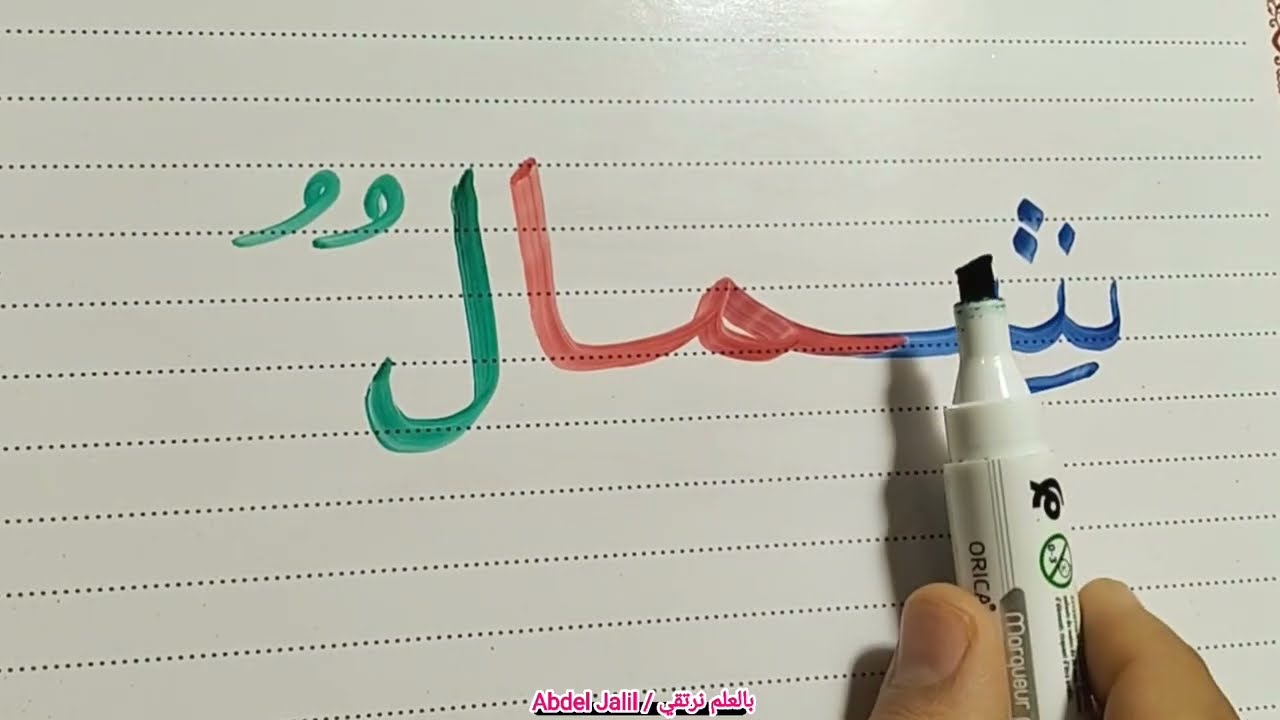 شِمالٌ
ORICA
marqueur
Abdel Jalil / بالعلم نرتقي